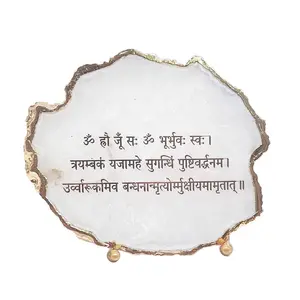 ॐ हौं जूँ सः ॐ भूर्भुवः स्वः।
त्रयम्बकं यजामहे सुगन्धिं पुष्टिवर्द्धनम।
उर्व्वारूकमिव बन्धनान्मृत्योर्म्मुक्षीयमामृतात्॥